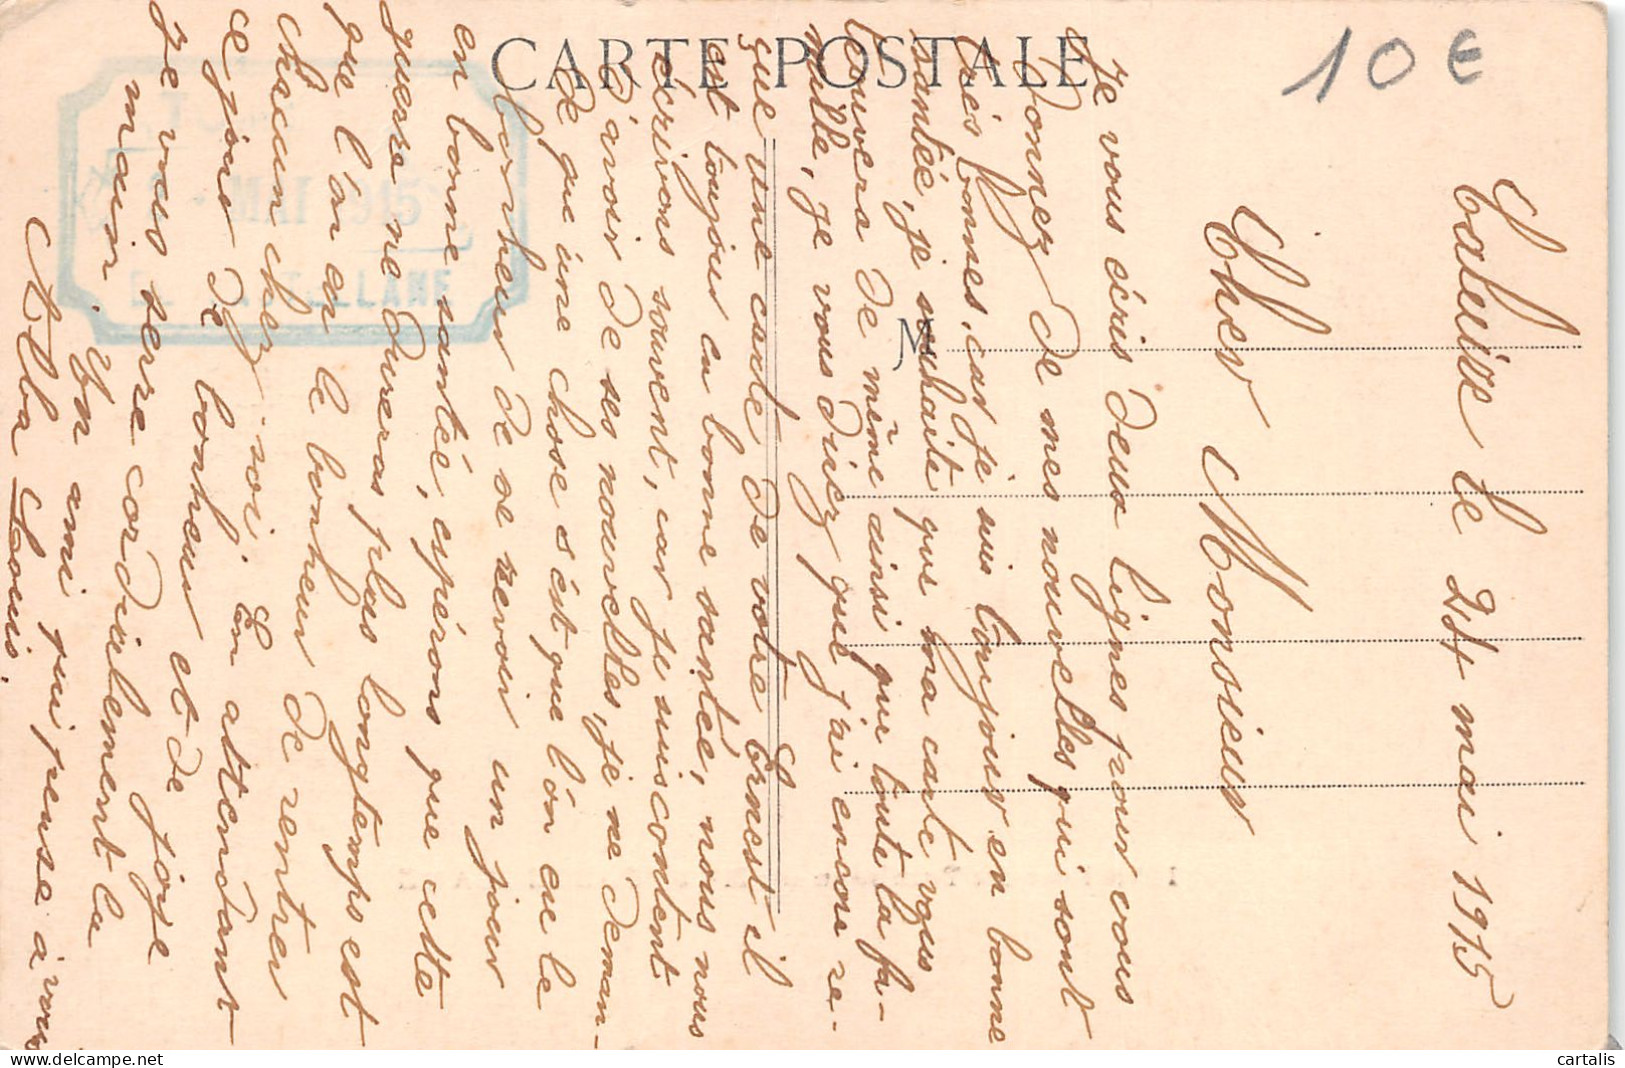 CARTE POSTALE
10 €
MAI 1915
M
le 24 mai 1915
Cher Monsieur
Je vous écris deux lignes pour vous
donnez de mes nouvelles qui sont
très bonnes, car je suis toujours en bonne
santée, je souhaite que ma carte vous
trouvera de même ainsi que toute la fa-
mille, je vous direz que j'ai encore re-
çue une carte de votre Ernest il
est toujour en bonne santée, nous nous
écrivons souvent, car je suis content
d'avoir de ses nouvelles, je ne deman-
de que une chose s'ést que l'ón eu le
borheur de se revoir un jour
en bonne santée, espérons que cette
guerre ne dureras plus longtemps est
que l'ón eu le bonheur de rentrer
chacun chez soi. En attendant
ce jour de bonheur et de joie
je vous serre cordialement la
main. Un ami qui pense à vous
Louis.
cartalis